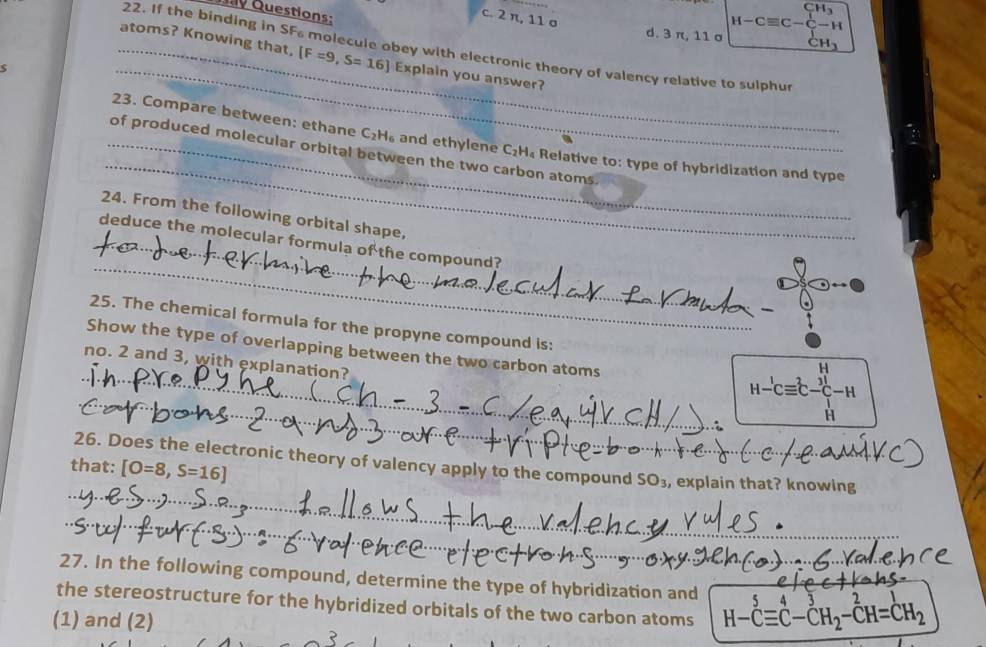 say Questions:
c. 2 π, 11 σ
d. 3 π, 11 σ
CH₃
H-C≡C-C-H
CH₃
22. If the binding in SF₆ molecule obey with electronic theory of valency relative to sulphur
atoms? Knowing that, [F =9, S= 16] Explain you answer?
23. Compare between: ethane C₂H₆ and ethylene C₂H₄ Relative to: type of hybridization and type
of produced molecular orbital between the two carbon atoms.
24. From the following orbital shape,
deduce the molecular formula of the compound?
to determine the molecular formula -
S
25. The chemical formula for the propyne compound is:
Show the type of overlapping between the two carbon atoms
no. 2 and 3, with explanation?
H
1 2 3
H-C≡C-C-H
H
in propyne (ch-3-c/
carbons 2 and 3 are triple-bo
26. Does the electronic theory of valency apply to the compound SO₃, explain that? knowing
that: [O=8, S=16]
yes, so₃ follows the valency rules.
sulfur(s): 6 valence electrons, oxygen(o): 6 valence
electrons-
27. In the following compound, determine the type of hybridization and
the stereostructure for the hybridized orbitals of the two carbon atoms
(1) and (2)
5 4 3 2 1
H-C≡C-CH₂-CH=CH₂